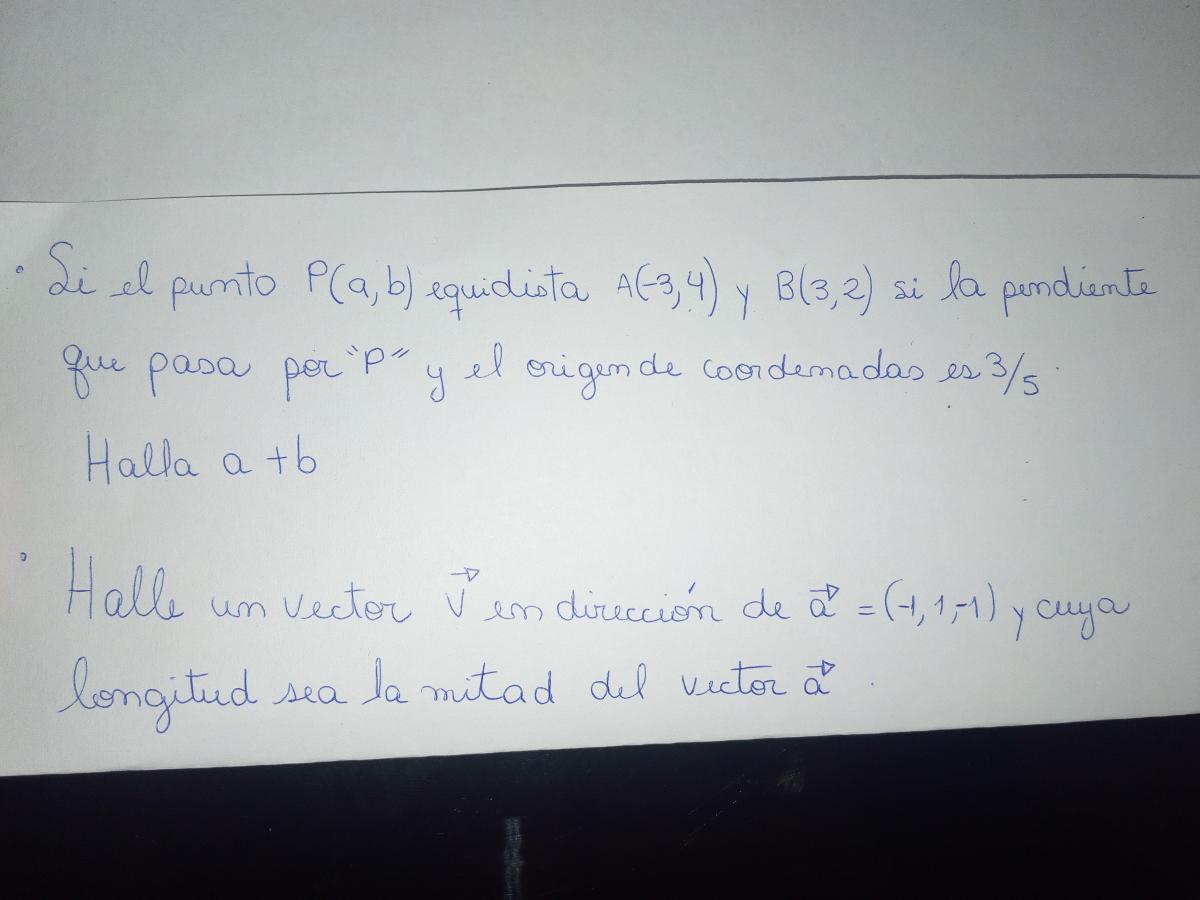 • Si el punto P(a,b) equidista A(-3,4) y B(3,2) si la pendiente
que pasa por "P" y el origen de coordenadas es 3/5.
Halla a+b
• Halle un vector v⃗ en dirección de a⃗ = (-1,1,-1) y cuya
longitud sea la mitad del vector a⃗.